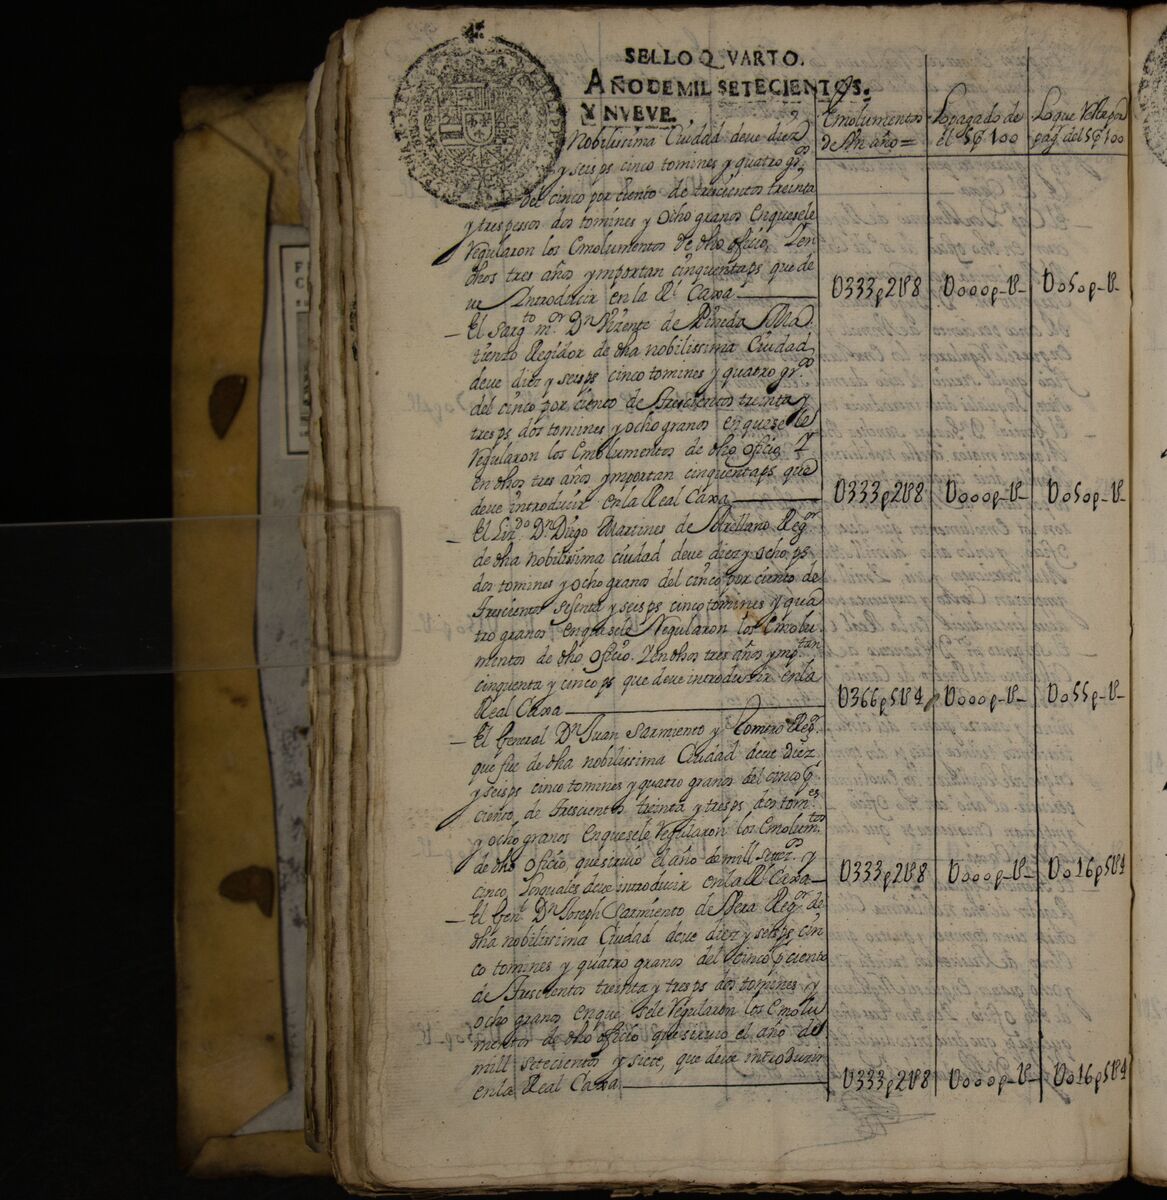 SELLO QVARTO.
AÑO DE MIL SETECIENTOS.
Y NVEVE.
Emolumentos
de Un año =
Lo pagado de
el 5 p 100
Lo que Resta por
pag.r del 5 p 100
Nobilissima Ciudad deve diez
y seis ps cinco tomines y quatro gr.os
del cinco por ciento de trescientos treinta
y tres pessos dos tomines y ocho granos enquesele
Regularon los Emolumentos de dho oficio, Yen
dhos tres años ymportan cinquenta ps que de
ve Introducir en la Rl Caxa
U333p2U8 U000p-U- U050p-U-
El Sarg.to m.or Dn Vizente de Pineda Ma
tiento Regidor de dha nobilissima Ciudad
deve diez y seis ps cinco tomines y quatro gr.os
del cinco por ciento de Trescientos treinta y
tres ps dos tomines y ocho granos enquese le
Regularon los Emolumentos de dho oficio Y
en dhos tres años ymportan cinquenta ps que
deve introducir en la Real Caxa
U333p2U8 U000p-U- U050p-U-
El Liz.do Dn Diego Martines de Arellano Reg.or
de dha nobilissima ciudad deve diez y ocho ps
dos tomines y ocho granos del cinco por ciento de
Trescientos sesenta y seis ps cinco tomines y qua
tro granos enquesele Regularon los Emolu
mentos de dho oficio. Y en dhos tres años ymp.tan
cinquenta y cinco ps que deve introduzir enla
Real Caxa
U366p5U4 U000p-U- U055p-U-
El General Dn Juan Sarmiento y Romero Reg.or
que fue de dha nobilissima Ciudad deve diez
y seis ps cinco tomines y quatro granos del cinco p
ciento de Trescientos treinta y tres ps dos tom.es
y ocho granos enquesele Regularon los Emolum.tos
de dho oficio, que sirvio el año de mill setez.os y
cinco, los quales deve introducir en la Rl Caxa
U333p2U8 U000p-U- U016p5U4
El Gen.l Dn Joseph Sarmiento de Vera Reg.or de
dha nobilissima Ciudad deve diez y seis ps cin
co tomines y quatro granos del cinco p ciento
de Trescientos treinta y tres ps dos tomines y
ocho granos enque sele Regularon los Emolu
mentos de dho oficio que sirvio el año de
mill setecientos y siete, que deve introduzir
en la Real Caxa
U333p2U8 U000p-U- U016p5U4